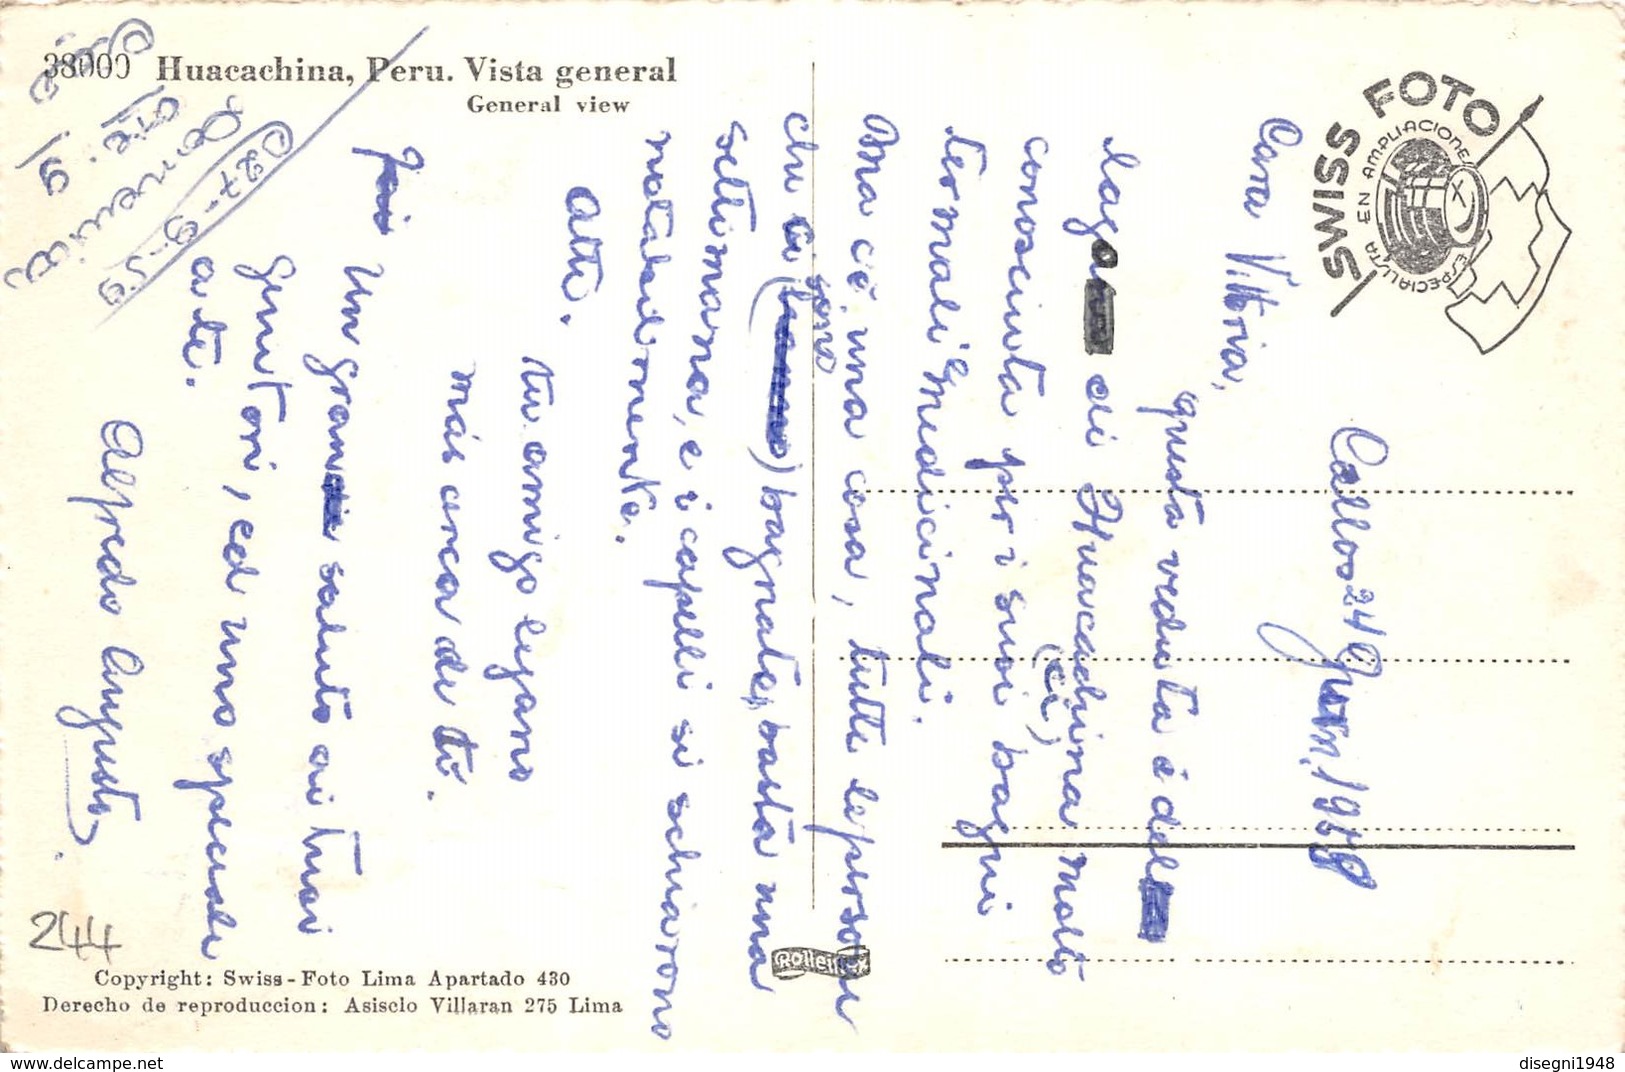 38000 Huacachina, Peru. Vista general
General view
SWISS FOTO
ESPECIALISTA EN AMPLIACIONES
27-9-59
Cara Vittoria,
questa veduta è del
lago di Huacachina molto
(ci)
conosciuta per i suoi bagni
termali medicinali.
Ma c'è una cosa, tutte le persone
che ci (hanno) bagnate, basta una
sono
settimana, e i capelli si schiarono
notabilmente.
Atte.
tu amigo lejano
más cerca de ti.
Un gran saluto ai tuoi
genitori, ed uno speciale
a te.
Alfredo Augusto
244
Rolleiflex
Copyright: Swiss-Foto Lima Apartado 430
Derecho de reproduccion: Asisclo Villaran 275 Lima
disegni1948